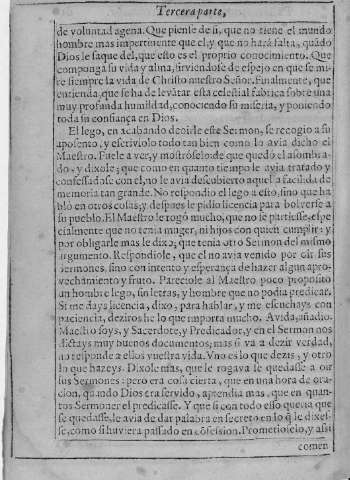 Tercera parte,
de voluntad agena. Que piense de si, que no tiene el mundo
hombre mas impertinente que el, y que no hará falta, quãdo
Dios le saque del, que esto es el proprio conocimiento. Que
componga su vida y alma, sirviendole de espejo en que se mi-
re siempre la vida de Christo nuestro Señor. Finalmente, que
entienda, que se ha de levãtar esta celestial fabrica sobre una
muy profunda humildad, conociendo su miseria, y poniendo
toda su confiança en Dios.
El lego, en acabando de oirle este Sermon, se recogio a su
aposento, y escriviolo todo tan bien como lo avia dicho el
Maestro. Fuele a ver, y mostròselo: de que quedò el asombra-
do, y dixole; que como en quanto tiempo le avia tratado y
confessadose con el, no le avia descubierto aquella
memoria tan grande. No respondio el lego a esto, sino que ha
blò en otras cosas, y despues le pidio licencia para bolverse a
su pueblo. El Maestro le rogò mucho, que no se partiesse, espe
cialmente que no tenia muger, ni hijos con quien cumplir: y
por obligarle mas le dixo, que tenia otro Sermon del mismo
argumento. Respondiole, que el no avia venido por oir sus
sermones, sino con intento y esperança de hazer algun apro-
vechamiento y fruto. Pareciole al Maestro poco proposito
un hombre lego, sin letras, y hombre que no podia predicar.
Si me days licencia, dixo, para hablar, y me escuchays con
paciencia, deziros he lo que importa mucho. Avida, añadio.
Maestro soys, y Sacerdote, y Predicador, y en el Sermon nos
distays muy buenos documentos, mas si va a dezir verdad,
no responde a ellos vuestra vida. Vno es lo que dezis, y otro
lo que hazeys. Dixole mas, que le rogava le quedasse a oir
sus Sermones: pero era cosa cierta, que en una hora de ora-
cion, quando Dios era servido, aprendia mas, que en quan-
tos Sermones el predicasse. Y que si con todo esso queria que
se quedasse, le avia de dar palabra en secreto en lo q̃ le dixes-
se, como si huviera passado en cõfession. Prometioselo, y assi
comen